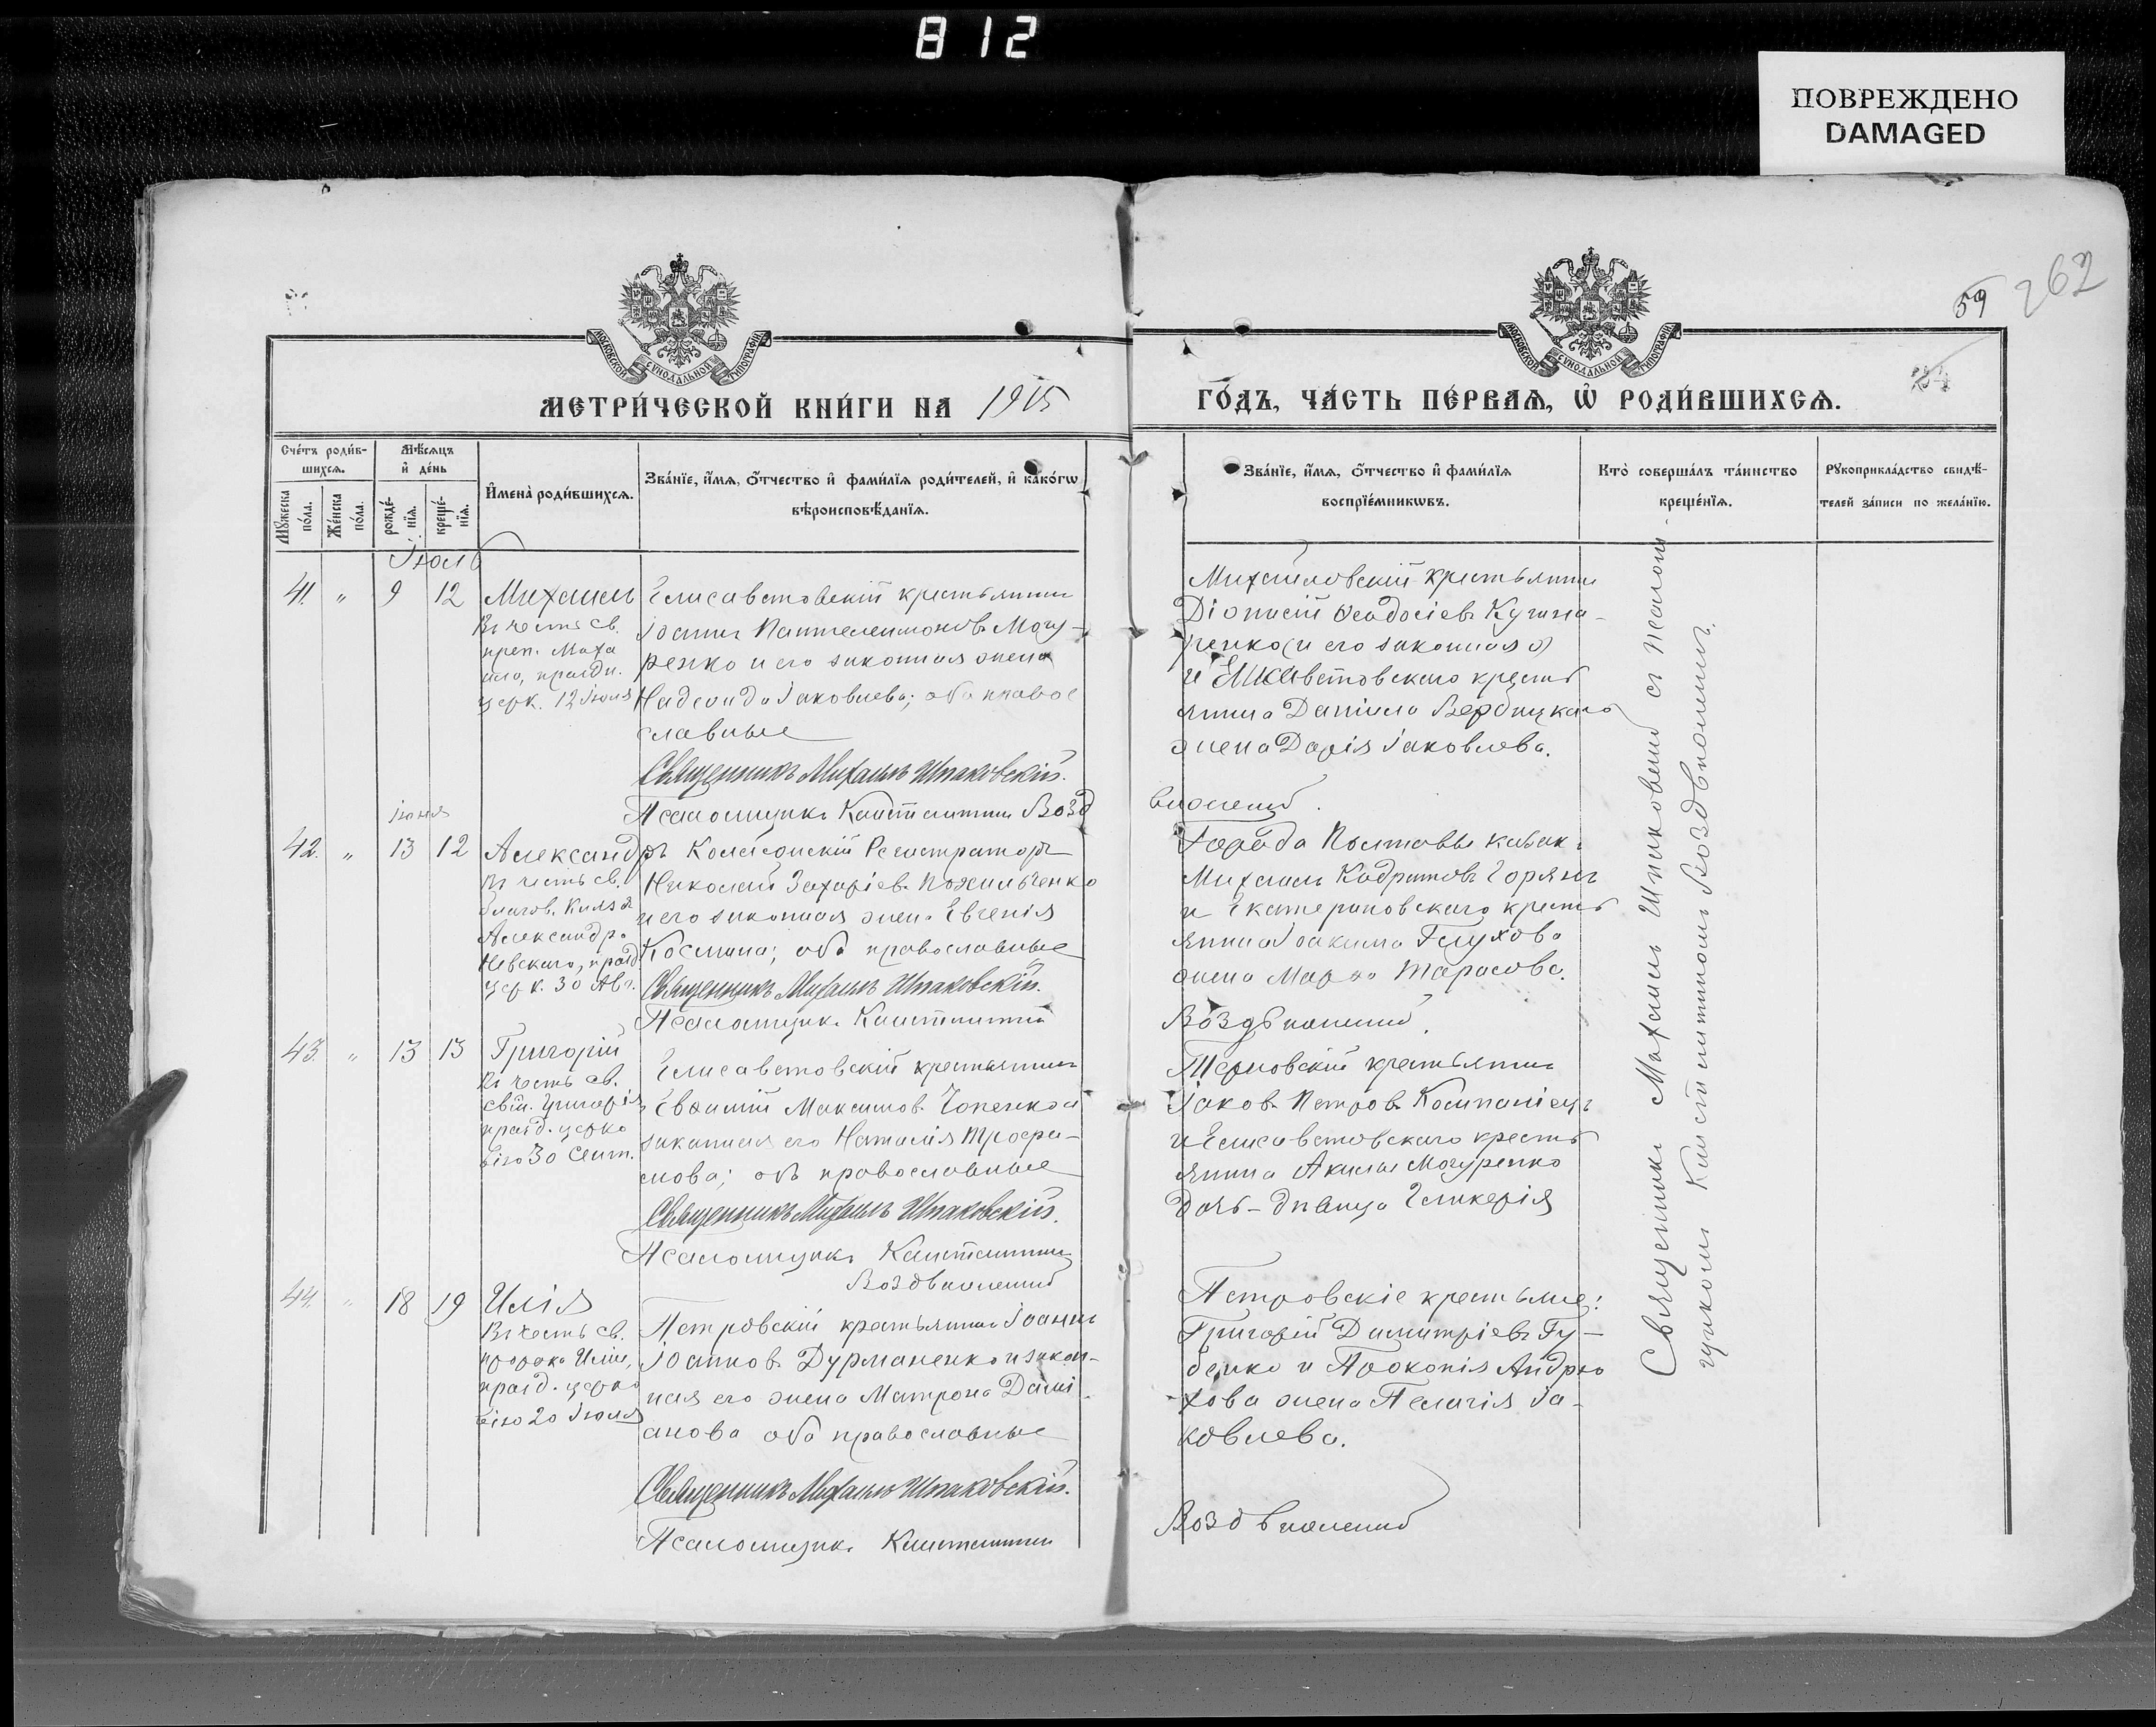 812
ПОВРЕЖДЕНО
DAMAGED
262
59
МОСКОВСКОЙ СУНОДАЛЬНОЙ ТИПОГРАФІИ
МОСКОВСКОЙ СУНОДАЛЬНОЙ ТИПОГРАФІИ
МЕТРИ́ЧЕСКОЙ КНИ́ГИ НА 1915
ГО́ДЪ, ЧА́СТЬ ПЕ́РВАЯ, Ѡ҆ РОДИ́ВШИХСЯ.
Сче́тъ роди́в-
шихся.
Мѣсяцъ
и҆ де́нь
Мꙋжеска
по́ла.
Же́нска
по́ла.
рожде́-
нїя.
креще́-
нїя.
И҆мена̀ роди́вшихся.
Зва́нїе, и҆́мя, ѻ҆́тчество и҆ фами́лїя роди́телей, и҆ како́гѡ
вѣроисповѣ́данїя.
Зва́нїе, и҆́мя, ѻ҆́тчество и҆ фами́лїя
воспрїе́мникѡвъ.
Кто̀ соверша́лъ та́инство
креще́нїя.
Рꙋкоприкла́дство свидѣ́-
телей за́писи по жела́нїю.
Іюль
41. " 9 12
Михаилъ
Въ честь св.
преп. Миха
ила, праздн.
церк. 12 Іюля
Елисаветовскій крестьянинъ
Іоаннъ Пантелеимоновъ Могу-
ренко и его законная жена
Надежда Іаковлева; оба право
славные
Священникъ Михаилъ Шпаковскій.
Псаломщикъ Константинъ Возд
Михайловскій крестьянинъ
Діонисій Ѳеодосіевъ Кучина-
ренко (и его законная з)
и Елисаветовскаго кресть
янина Даніила Вердицкаго
жена Дарія Іаковлева.
виженскій.
іюня
42. " 13 12
Александръ
Въ честь св.
благов. Князя
Александра
Невскаго, празд
церк. 30 Авг.
Коллежскій Регистраторъ
Николай Захаріевъ Пожильченко
и его законная жена Евгенія
Косьмина; оба православные
Священникъ Михаилъ Шпаковскій.
Псаломщикъ Константинъ
Города Полтавы казакъ
Михаилъ Кодратовъ Горянъ
и Екатериновскаго кресть
янина Іоакима Глухова
жена Марѳа Тарасова.
Воздвиженскій.
43. " 13 13
Григорій
Въ честь св.
свщ. Григорія
празд. церко
вію 30 Сент.
Елисаветовскій крестьянинъ
Евѳимій Максимовъ Чопенко и
законная его Наталія Трофи-
мова; оба православные
Священникъ Михаилъ Шпаковскій.
Псаломщикъ Константинъ
Воздвиженскій
Терновскій крестьянинъ
Іаковъ Петровъ Компаніецъ
и Елисаветовскаго кресть
янина Акилы Могуренко
дочь-дѣвица Гликерія
44. " 18 19
Илія
Въ честь св.
пророка Иліи,
празд. церко
вію 20 Іюля
Петровскій крестьянинъ Іоаннъ
Іоанновъ Дурманенко и закон-
ная его жена Матрона Дамі-
анова оба православные
Священникъ Михаилъ Шпаковскій.
Псаломщикъ Константинъ
Петровскіе крестьяне:
Григорій Димитріевъ Гу-
бенко и Прокопія Андрю
хова жена Пелагія Іа-
ковлева.
Воздвиженскій
Священникъ Михаилъ Шпаковскій съ псалом
щикомъ Константиномъ Воздвиженскимъ.